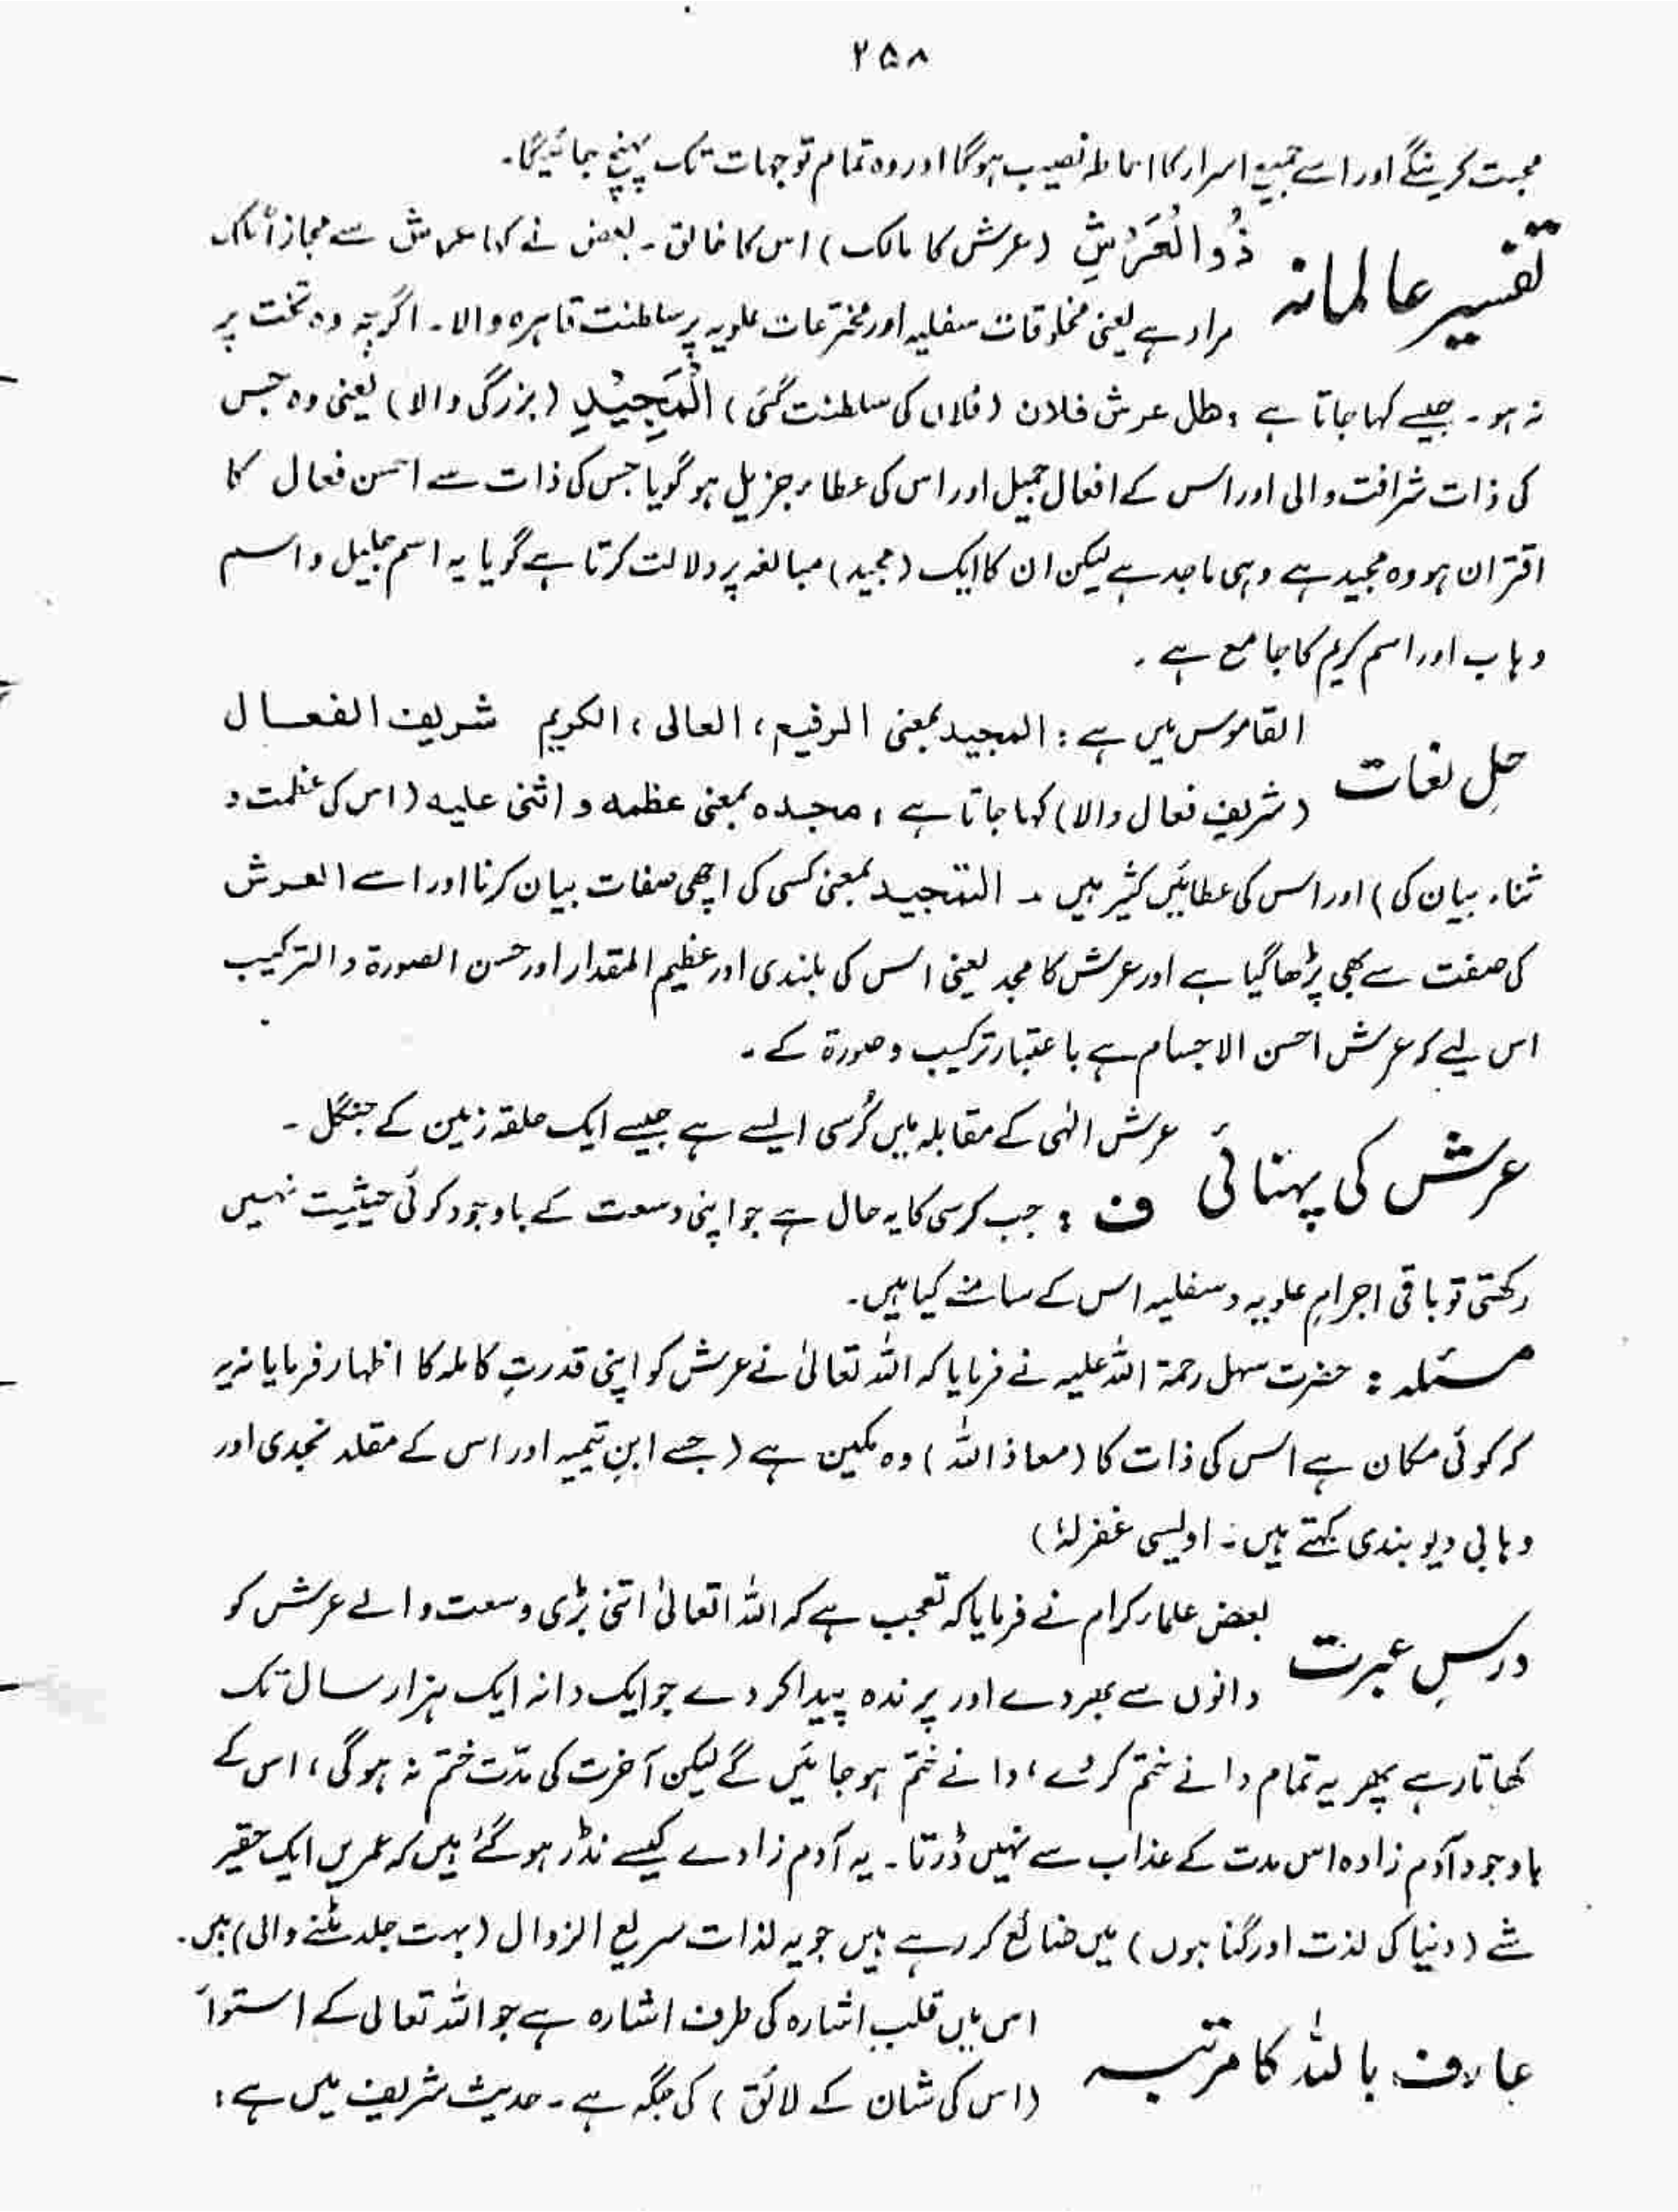 ۲۵۸
محبت کرینگے اور اسے جمیع اسرار کا احاطہ نصیب ہوگا اور وہ تمام توجہات تک پہنچ جائیگا۔
تفسیر عالمانہ
ذُو الْعَرْشِ (عرش کا مالک) اس کا خالق۔ بعض نے کہا عرش سے مجازاً ملک
مراد ہے یعنی مخلوقات سفلیہ اور مخترعات علویہ پر سلطنت قاہرہ والا۔ اگرچہ وہ تخت پر
نہ ہو۔ جیسے کہا جاتا ہے : ھل عرش فلان (فلاں کی سلطنت گئی) الْمَجِيْدِ (بزرگی والا) یعنی وہ جس
کی ذات شرافت والی اور اس کے افعال جمیل اور اس کی عطاء جزیل ہو گویا جس کی ذات سے احسن فعال کا
اقتران ہو وہ مجید ہے وہی ماجد ہے لیکن ان کا ایک (مجید) مبالغہ پر دلالت کرتا ہے گویا یہ اسم جلیل و اسم
وہاب اور اسم کریم کا جامع ہے۔
حلِ لغات
القاموس میں ہے : المجید بمعنی الرفیع، العالی، الکریم شریف الفعال
(شریف فعال والا) کہا جاتا ہے : مجدہ بمعنی عظمہ و اثنی علیہ (اس کی عظمت و
ثناء بیان کی) اور اس کی عطائیں کثیر ہیں۔ التمجید بمعنی کسی کی اچھی صفات بیان کرنا اور اسے العرش
کی صفت سے بھی پڑھا گیا ہے اور عرش کا مجد یعنی اس کی بلندی اور عظیم المقدار اور حسن الصورۃ و الترکیب
اس لیے کہ عرش احسن الاجسام ہے باعتبار ترکیب و صورۃ کے۔
عرش کی پہنائی
عرش الٰہی کے مقابلہ میں کُرسی ایسے ہے جیسے ایک حلقہ زمین کے جنگل۔
ف : جب کرسی کا یہ حال ہے جو اپنی وسعت کے باوجود کوئی حیثیت نہیں
رکھتی تو باقی اجرامِ علویہ و سفلیہ اس کے سامنے کیا ہیں۔
مسئلہ : حضرت سہل رحمۃ اللہ علیہ نے فرمایا کہ اللہ تعالیٰ نے عرش کو اپنی قدرتِ کاملہ کا اظہار فرمایا نہ یہ
کہ کوئی مکان ہے اس کی ذات کا (معاذ اللہ) وہ مکین ہے (جسے ابنِ تیمیہ اور اس کے مقلد نجدی اور
وہابی دیوبندی کہتے ہیں۔ اویسی غفرلہٗ)
درسِ عبرت
بعض علماء کرام نے فرمایا کہ تعجب ہے کہ اللہ تعالیٰ اتنی بڑی وسعت والے عرش کو
دانوں سے بھر دے اور پرندہ پیدا کر دے جو ایک دانہ ایک ہزار سال تک
کھاتا رہے پھر یہ تمام دانے ختم کرے، دانے ختم ہو جائیں گے لیکن آخرت کی مدّت ختم نہ ہوگی، اس کے
باوجود آدم زادہ اس مدت کے عذاب سے نہیں ڈرتا۔ یہ آدم زادے کیسے نڈر ہو گئے ہیں کہ عمریں ایک حقیر
شے (دنیا کی لذت اور گناہوں) میں ضائع کر رہے ہیں جو یہ لذات سریع الزوال (بہت جلد مٹنے والی) ہیں۔
عارف باللہ کا مرتبہ
اس میں قلب اشارہ کی طرف اشارہ ہے جو اللہ تعالی کے استواء
(اس کی شان کے لائق) کی جگہ ہے۔ حدیث شریف میں ہے :